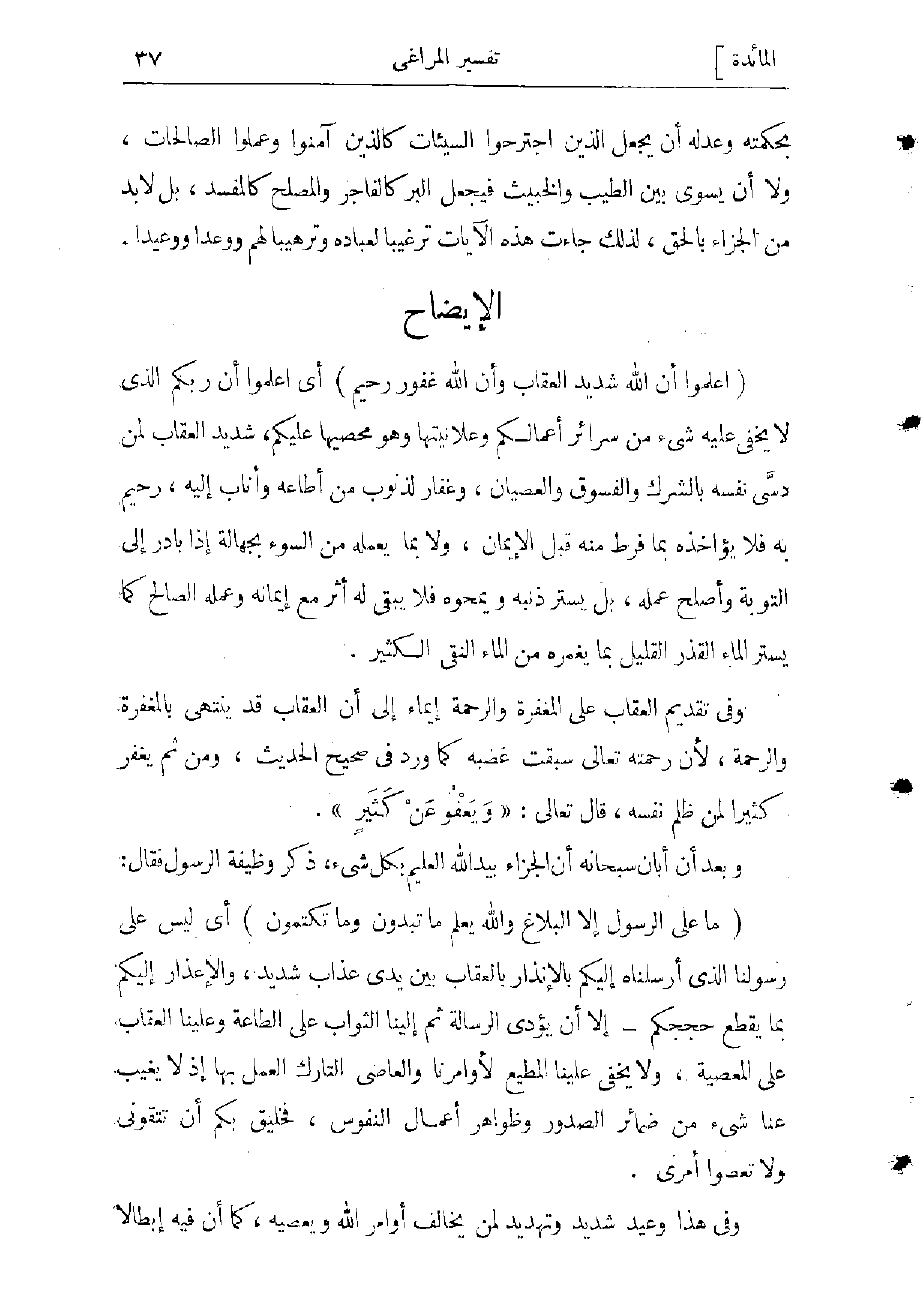 المائدة ] تفسير المراغى ٣٧
بحكمته وعدله أن يجعل الذين اجترحوا السيئات كالذين آمنوا وعملوا الصالحات ،
ولا أن يسوى بين الطيب والخبيث فيجعل البر كالفاجر والمصلح كالمفسد ، بل لابد
من الجزاء بالحق ، لذلك جاءت هذه الآيات ترغيبا لعباده وترهيبا لهم ووعدا ووعيدا .
الإيضاح
( اعلموا أن الله شديد العقاب وأن الله غفور رحيم ) أى اعلموا أن ربكم الذى
لا يخفى عليه شىء من سرائر أعمالكم وعلانيتها وهو محصيها عليكم، شديد العقاب لمن
دسَّى نفسه بالشرك والفسوق والعصيان ، وغفار لذنوب من أطاعه وأناب إليه ، رحيم
به فلا يؤاخذه بما فرط منه قبل الإيمان ، ولا بما يعمله من السوء بجهالة إذا بادر إلى
التوبة وأصلح عمله ، بل يستر ذنبه ويمحوه فلا يبقى له أثر مع إيمانه وعمله الصالح كما
يستر الماء القذر القليل بما يغمره من الماء النقى الكثير .
وفى تقديم العقاب على المغفرة والرحمة إيماء إلى أن العقاب قد ينتهى بالمغفرة
والرحمة ، لأن رحمته تعالى سبقت غضبه كما ورد فى صحيح الحديث ، ومن ثم يغفر
كثيرا لمن ظلم نفسه ، قال تعالى : « وَيَعْفُو عَنْ كَثَيرٍ » .
وبعد أن أبان سبحانه أن الجزاء بيد الله العليم بكل شىء، ذكر وظيفة الرسول فقال:
( ما على الرسول إلا البلاغ والله يعلم ما تبدون وما تكتمون ) أى ليس على
رسولنا الذى أرسلناه إليكم بالإنذار بالعقاب بين يدى عذاب شديد ، والإعذار إليكم
بما يقطع حججكم – إلا أن يؤدى الرسالة ثم إلينا الثواب على الطاعة وعلينا العقاب
على المعصية ، ولا يخفى علينا المطيع لأوامرنا والعاصى التارك العمل بها إذ لا يغيب
عنا شىء من ضمائر الصدور وظواهر أعمال النفوس ، فخليق بكم أن تتقونى
ولا تعصوا أمرى .
وفى هذا وعيد شديد وتهديد لمن يخالف أوامر الله ويعصيه ، كما أن فيه إبطالا